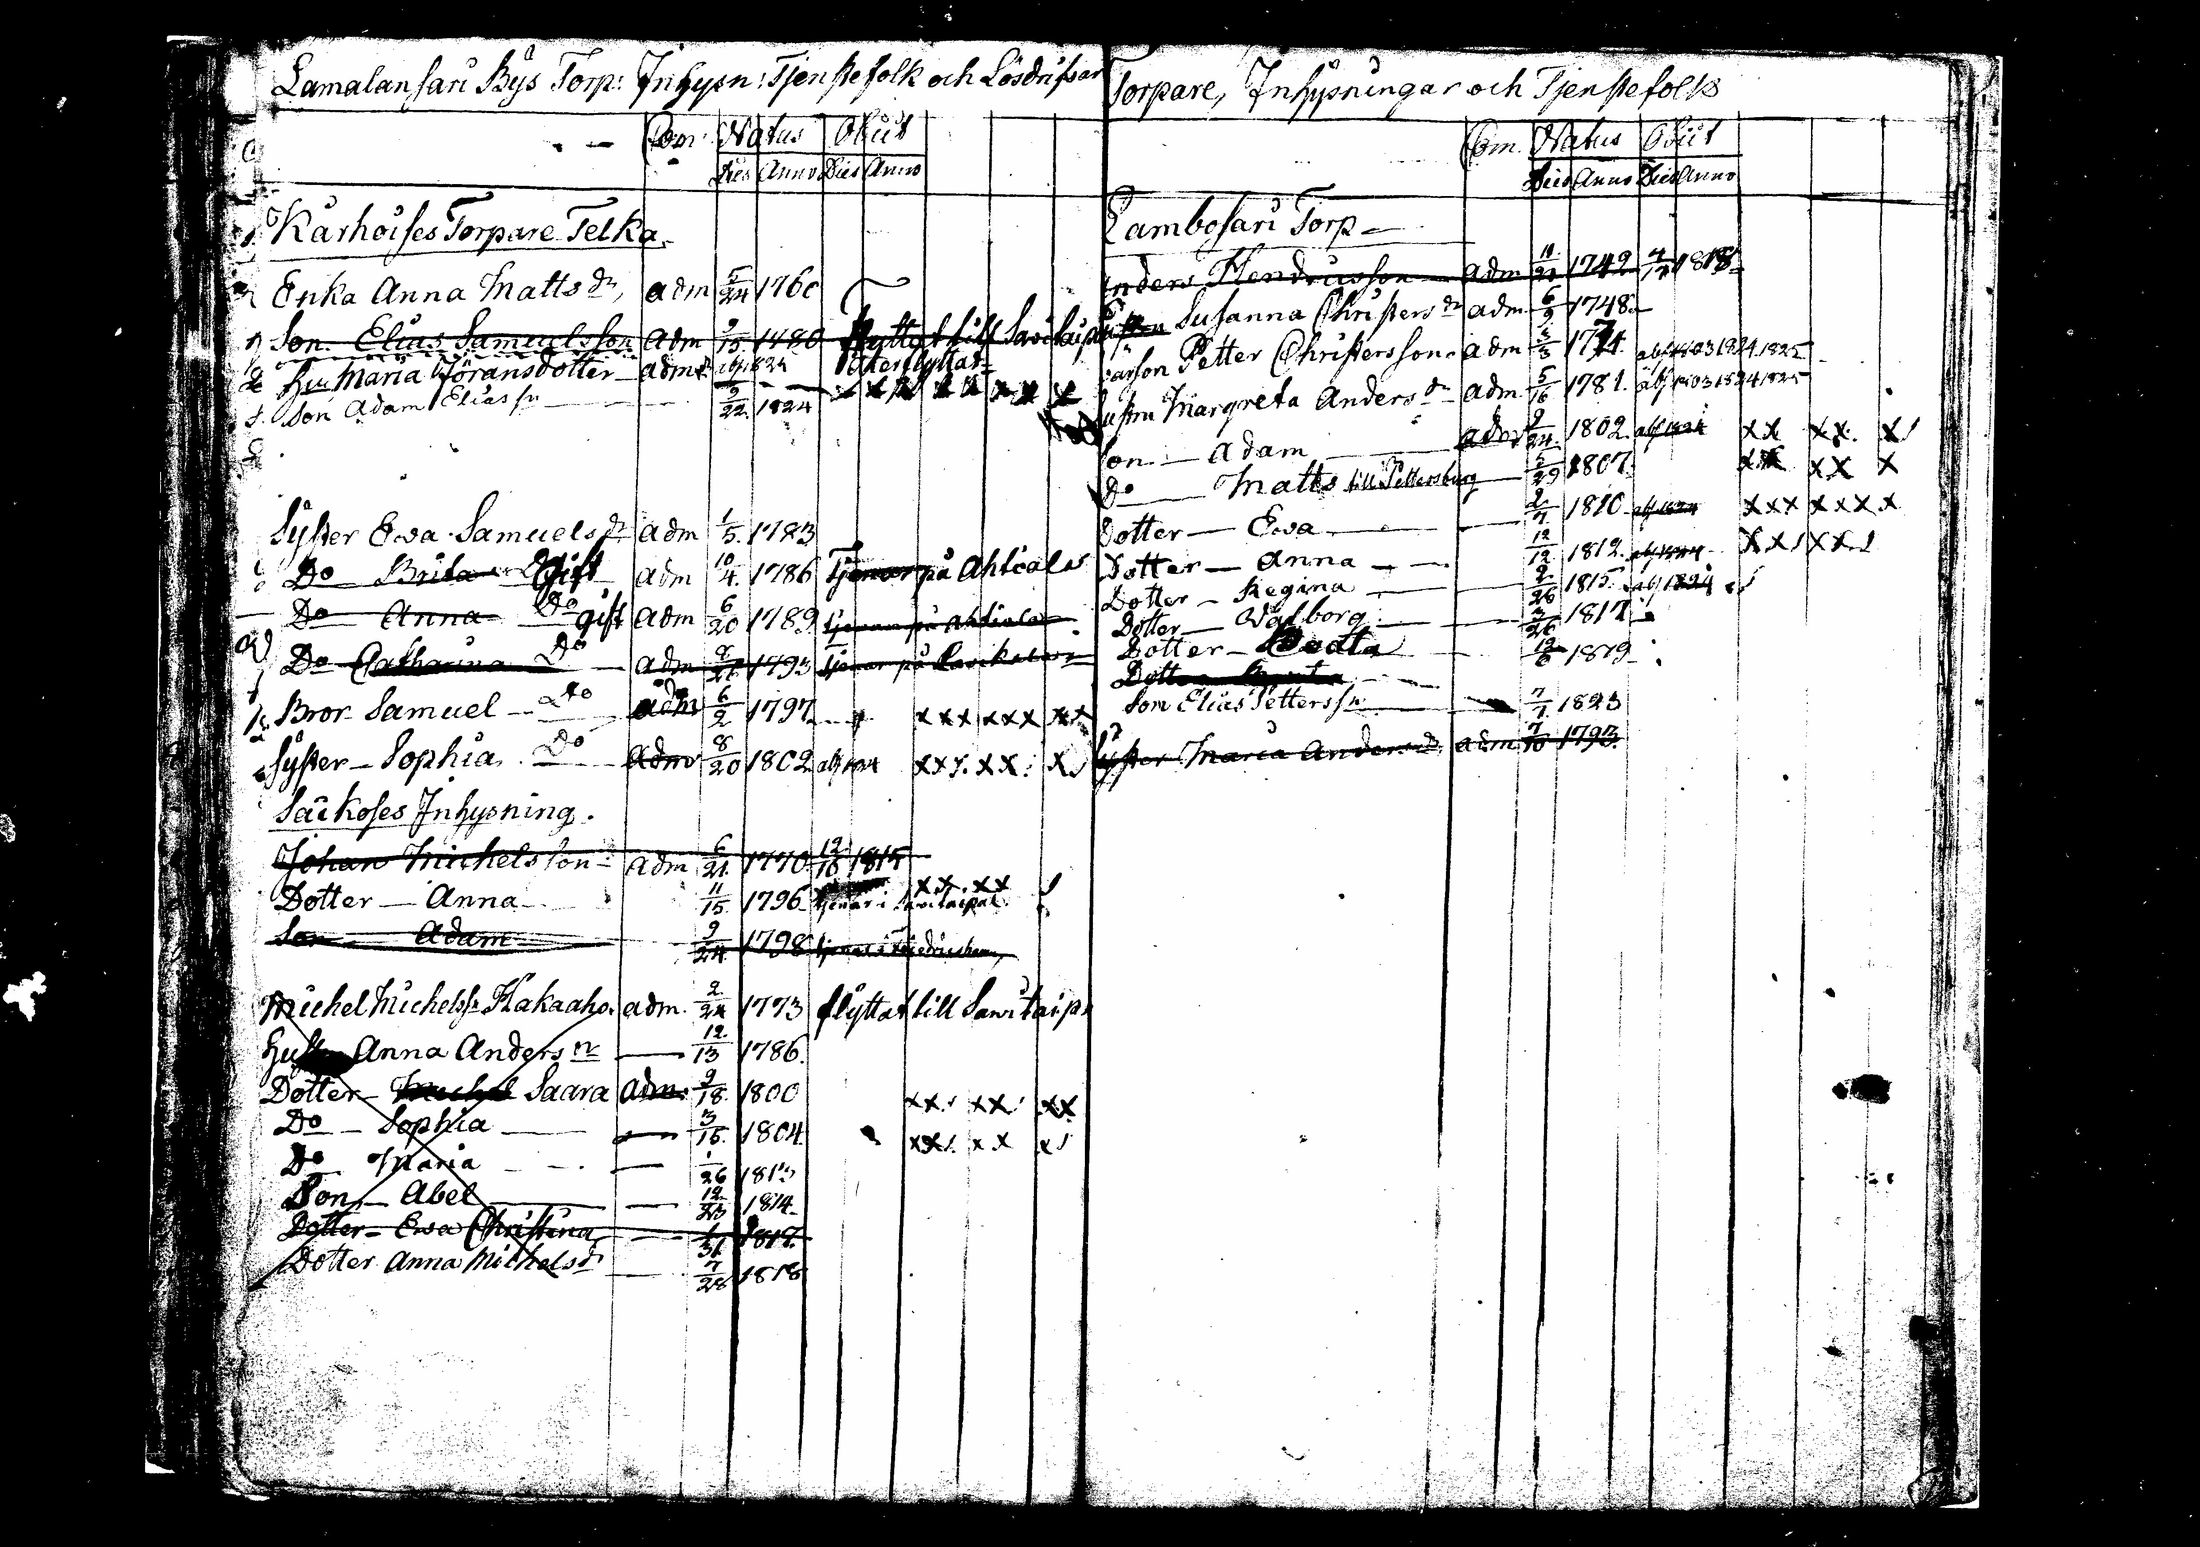 Lamalansari Bys Torp: Inhysn: Tjenstefolk och Lösdrifvar
Com: Natus Obiit
Dies Anno Dies Anno
Karhoises Torpare Telka
Erika Anna Matts dr adm 5/24 1760
Son Elias Samuelsson adm 9/15 1780 flyttat till Savitaipal
Hu Maria Göransdotter adm Återflyttat
Son Adam Elias sn 9/22 1824
Syster Ewa Samuels dr adm 1/5 1783
Do Brita gift adm 10/4 1786 Tjenar på Ahtiala
Do Anna Do gift adm 6/20 1789 tjenar på Ahtiala
Do Catharina Do adm 1793 tjenar på
Bror Samuel Do adm 6/2 1797 x x x x x x x x
Syster Sophia Do adm 8/20 1802 x x x x x
Säikoses Inhysning.
Johan Michelsson adm 6/21 1770 12/16 1815
Dotter Anna 11/15 1796 tjenar i Savitaipal x x x x
Son Adam 9/24 1798 tjenar i Fredrichham
Michel Michelss Hakaaho adm 2/24 1773 flyttat till Savitaipa
Hust Anna Anders dr 12/13 1786
Dotter Michel Saara adm 9/18 1800 x x x x x x
Do Sophia 3/15 1804 x x x x x
Do Maria 1/26
Son Abel 12/23 1814
Dotter Ewa Christina 1/31 1817
Dotter Anna Michels dr 7/28 1818
Torpare, Inhysningar och Tjenstefolk
Com. Natus Obiit
Dies Anno Dies Anno
Lambosari Torp
Anders Hendricsson adm 11/21 1742 1818
Susanna Christers dr adm 6/9 1748
Petter Christersson adm 1774 1803 1824 1825
ustru Margreta Anders dr adm 5/16 1781 1803 1824 1825
Son Adam adm 9/24 1802 x x x x x
Do Matts till Pettersburg 5/29 1807 x x x x x
Dotter Ewa 2/7 1810 x x x x x x x
Dotter Anna 12/12 1812 x x x x
Dotter Regina 2/26 1815
Dotter Walborg 3/26 1817
Dotter Beata 1819
Dotter
Son Elias Petterss 7/7 1823
Syster Maria Anders dr adm 7/10 1793